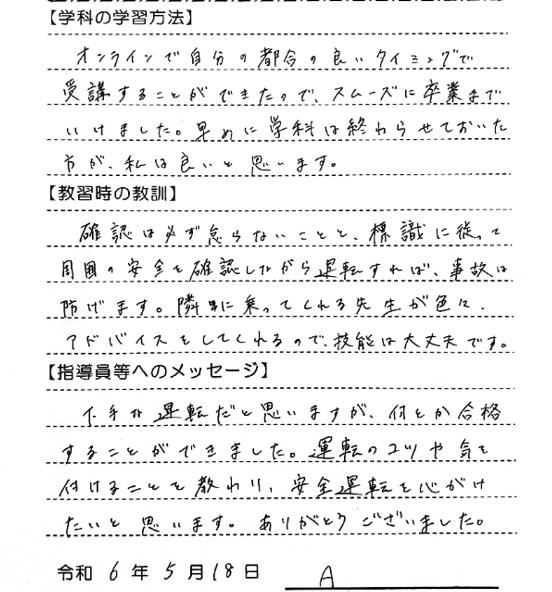 【学科の学習方法】
オンラインで自分の都合の良いタイミングで
受講することができたので、スムーズに卒業まで
いけました。早めに学科は終わらせておいた
方が、私は良いと思います。
【教習時の教訓】
確認は必ず怠らないことと、標識に従って
周囲の安全を確認しながら運転すれば、事故は
防げます。隣に乗ってくれる先生が色々、
アドバイスをしてくれるので、技能は大丈夫です。
【指導員等へのメッセージ】
下手な運転だと思いますが、何とか合格
することができました。運転のコツや気を
付けることを教わり、安全運転を心がけ
たいと思います。ありがとうございました。
令和 6 年 5 月 18 日 A